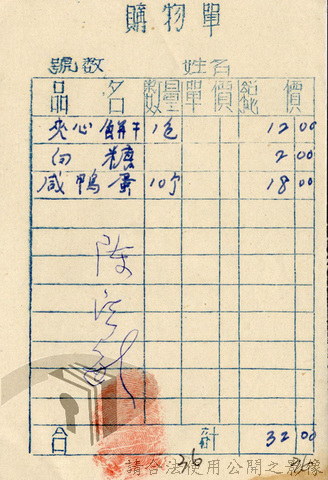 購物單
號数 姓名
品名 數量 單價 總價
夹心餅干 1包 12 00
白糖 2 00
咸鴨蛋 10个 18 00
合計 32 00
36
請合法使用公開之影像